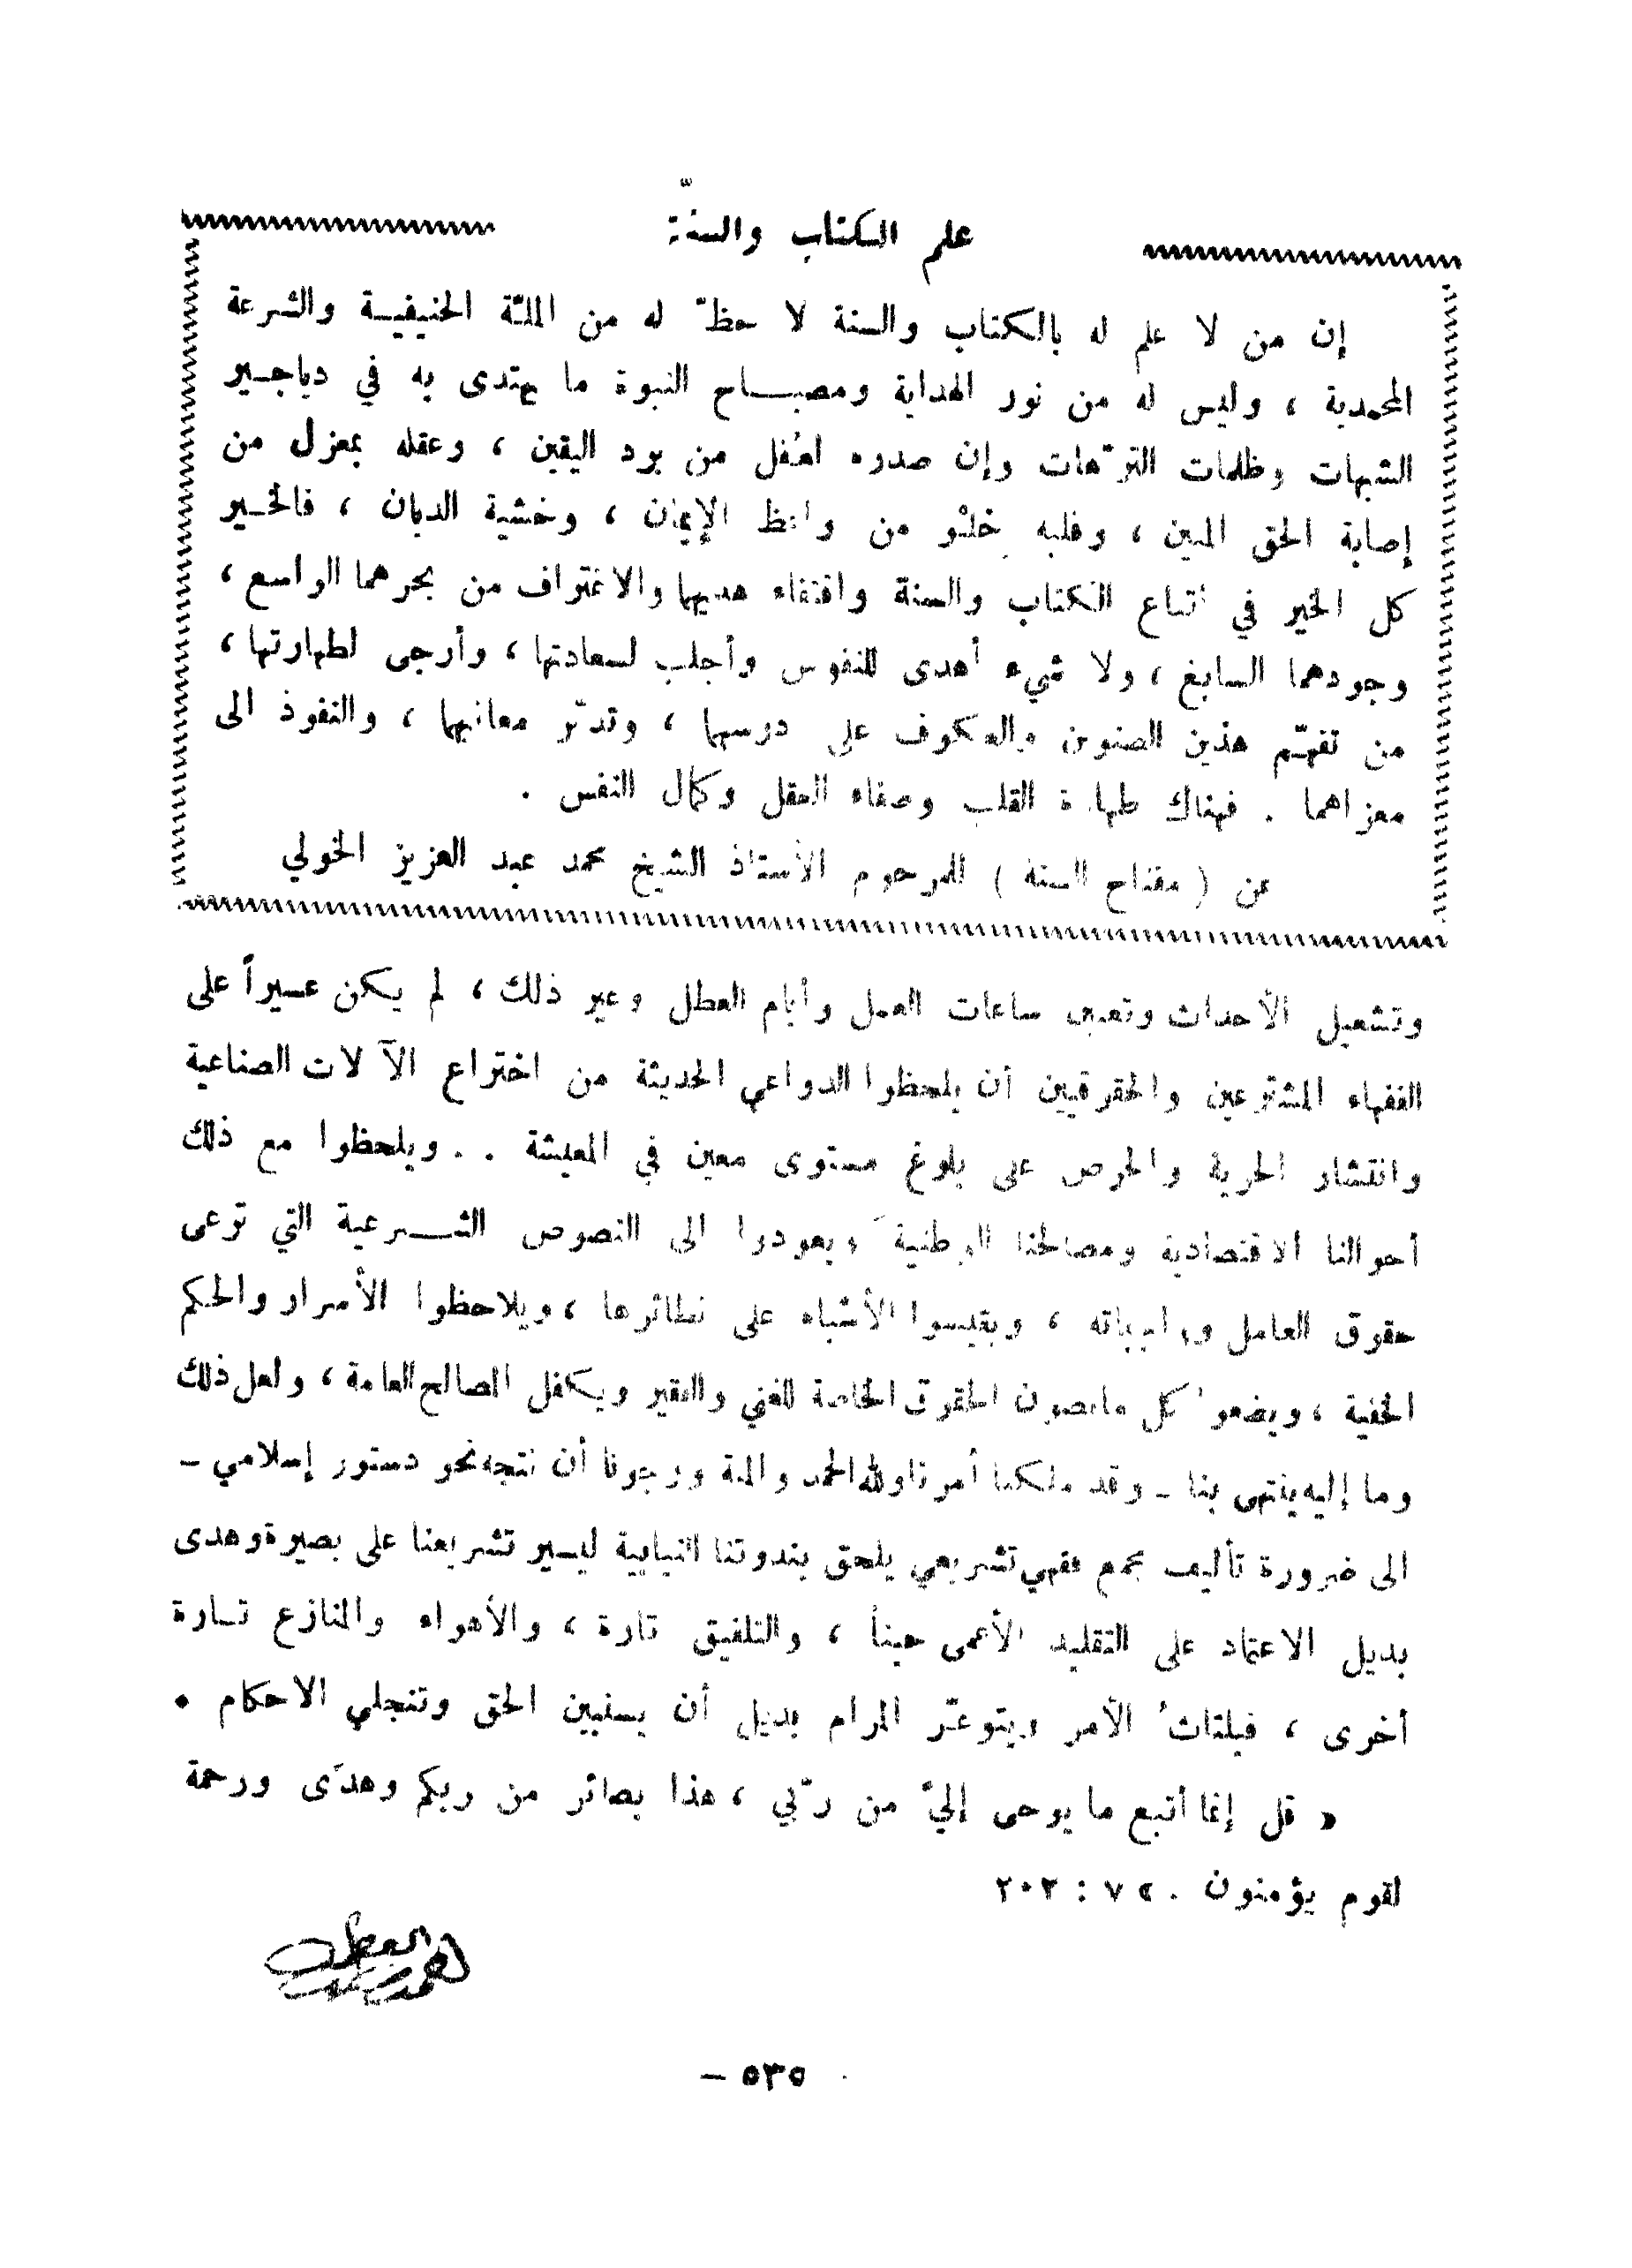 علم الكتاب والسنّة
إن من لا علم له بالكتاب والسنة لا حظّ له من الملّة الحنيفيـة والشرعة
المحمدية ، وليس له من نور الهداية ومصبـــاح النبوة ما يهتدى به في دياجـير
الشبهات وظلمات الترّهات وإن صدره لغُفل من برد اليقين ، وعقله بمعزل من
إصابة الحق المبين ، وقلبه خِلْو من واعظ الإيمان ، وخشية الديان ، فالخـير
كل الخير في اتباع الكتاب والسنة واقتفاء هديهما والاغتراف من بحرهما الواسع ،
وجودهما السابغ ، ولا شيء أهدى للنفوس وأجلب لسعادتها ، وأرجى لطهارتها ،
من تفهّم هذين الصنوين والعكوف على درسهما ، وتدبّر معانيهما ، والنفوذ الى
مغزاهما . فهناك طهارة القلب وصفاء العقل وكمال النفس .
عن ( مفتاح السنة ) للمرحوم الأستاذ الشيخ محمد عبد العزيز الخولي
وتشغيل الأحداث وتعيين ساعات العمل وأيام العطل وغير ذلك ، لم يكن عسيراً على
الفقهاء المشترعين والحقوقيين أن يلحظوا الدواعي الحديثة من اختراع الآلات الصناعية
وانتشار الحرية والحرص على بلوغ مستوى معين في المعيشة . . ويلحظوا مع ذلك
أحوالنا الاقتصادية ومصالحنا الوطنية ويعودوا الى النصوص الشـــرعية التي ترعى
حقوق العامل وواجباته ، ويقيسوا الأشباه على نظائرها ، ويلاحظوا الأسرار والحكم
الخفية ، ويضعوا كل ما يصون الحقوق الخاصة للغني والفقير ويكفل المصالح العامة ، ولعل ذلك
وما إليه ينتهي بنا – وقد ملكنا أمرنا ولله الحمد والمنة ورجونا أن نتجه نحو دستور إسلامي –
الى ضرورة تأليف مجمع فقهي تشريعي يلحق بندوتنا النيابية ليسير تشريعنا على بصيرة وهدى
بديل الاعتماد على التقليد الأعمى حيناً ، والتلفيق تارة ، والأهواء والمنازع تـارة
أخرى ، فيلتاث الأمر ويتوعّر المرام بديل أن يستبين الحق وتنجلي الاحكام .
« قل إنما أتبع ما يوحى إليّ من ربّي ، هذا بصائر من ربكم وهدًى ورحمة
لقوم يؤمنون . » ٧ : ٢٠٢
– ٥٣٥